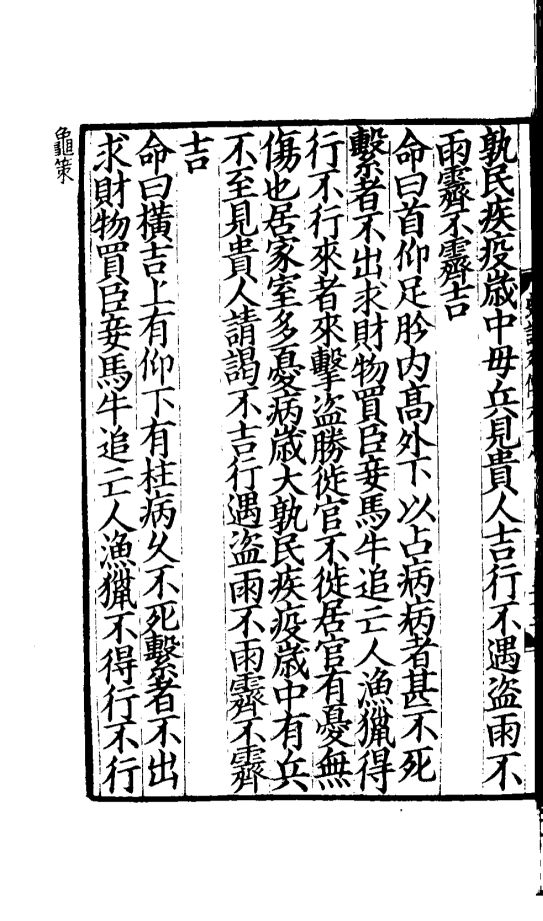 孰民疾疫歲中毋兵見貴人吉行不遇盜雨不
雨霽不霽吉
命曰首仰足肣內高外下以占病病者甚不死
繫者不出求財物買臣妾馬牛追亡人漁獵得
行不行來者來擊盜勝徙官不徙居官有憂無
傷也居家室多憂病歲大孰民疾疫歲中有兵
不至見貴人請謁不吉行遇盜雨不雨霽不霽
吉
命曰橫吉上有仰下有柱病久不死繫者不出
求財物買臣妾馬牛追亡人漁獵不得行不行
龜策